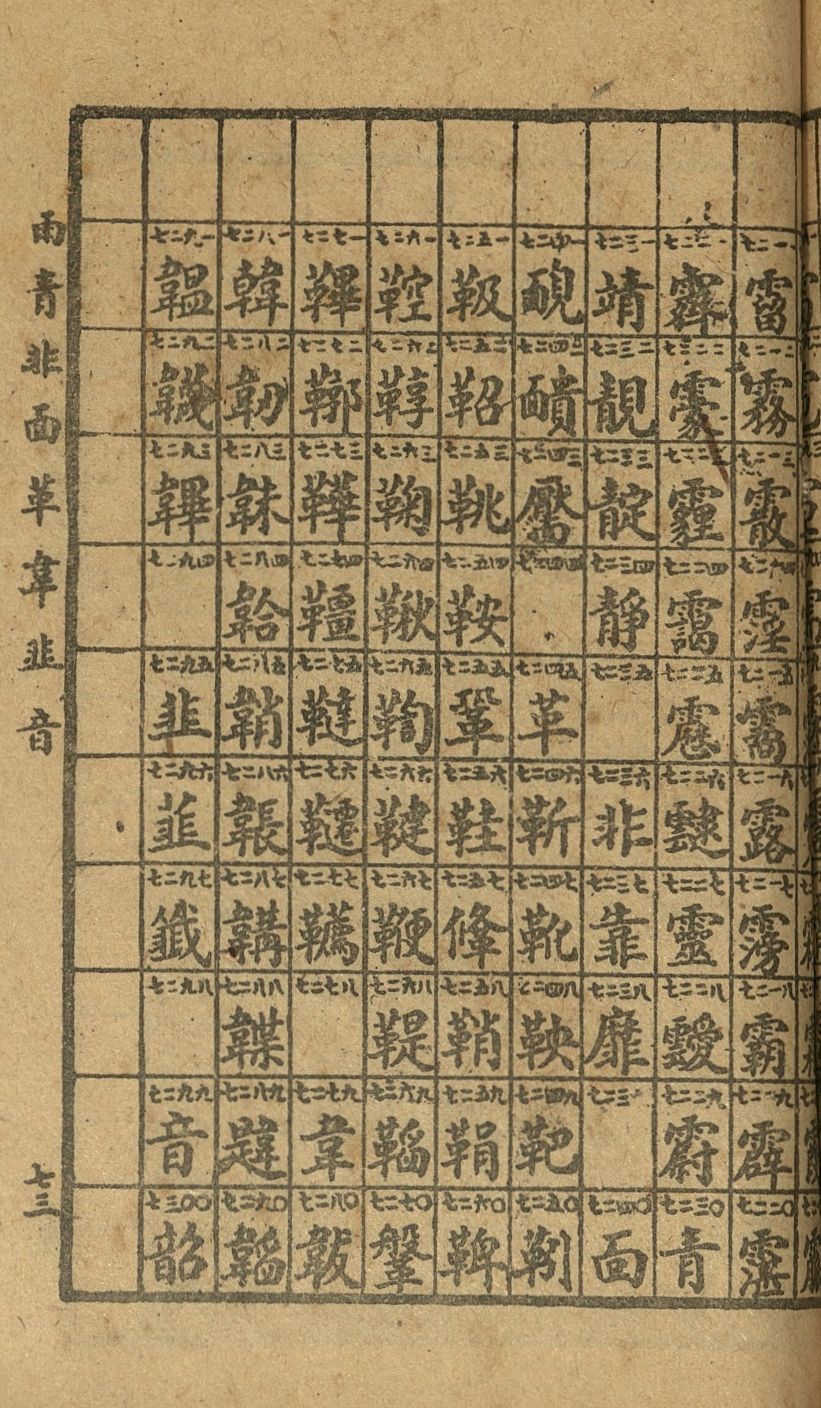 七二一一 霤
七二一二 霧
七二一三 霰
七二一四 霪
七二一五 霱
七二一六 露
七二一七 霶
七二一八 霸
七二一九 霹
七二二〇
七二二一 霽
七二二二
七二二三 霾
七二二四 靄
七二二五 靂
七二二六 靆
七二二七 靈
七二二八 靉
七二二九 霨
七二三〇 青
七二三一 靖
七二三二 靚
七二三三 靛
七二三四 靜
七二三五
七二三六 非
七二三七 靠
七二三八 靡
七二四〇 面
七二四一 靦
七二四二 靧
七二四三 靨
七二四四
七二四五 革
七二四六 靳
七二四七 靴
七二四八 鞅
七二四九 靶
七二五〇 靷
七二五一 靸
七二五二 鞀
七二五三 鞉
七二五四 鞍
七二五五 鞏
七二五六 鞋
七二五七 鞗
七二五八 鞘
七二五九 鞙
七二六〇 鞞
七二六一 鞚
七二六二 鞟
七二六三 鞠
七二六四 鞦
七二六五 鞫
七二六六 鞬
七二六七 鞭
七二六八 鞮
七二六九 鞱
七二七〇 鞶
七二七一 鞸
七二七二 鞹
七二七三 鞾
七二七四 韁
七二七五 韃
七二七六 韆
七二七七 韉
七二七八
七二七九 韋
七二八〇 韍
七二八一 韓
七二八二 韌
七二八三 韎
七二八四 韐
七二八五 韒
七二八六 韔
七二八七 韝
七二八八 韘
七二八九 韙
七二九〇 韜
七二九一 韞
七二九二 韈
七二九三 韠
七二九四
七二九五 韭
七二九六 韮
七二九七
七二九八
七二九九 音
七三〇〇 韶
雨青非面革韋韭音
七三